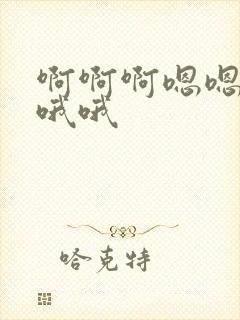 啊啊啊嗯嗯
哦哦
哈克特